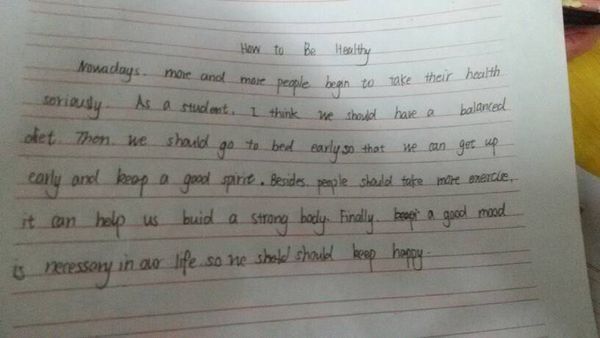 How to Be Healthy
Nowadays. more and more people begin to take their health
soriously. As a student, I think we should have a balanced
diet. Then we should go to bed early so that we can get up
early and keep a good spirit. Besides. people should take more exercise.
it can help us buid a strong body. Finally. a good mood
is necessary in our life. so we should keep happy.